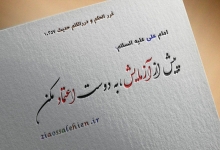 غرر الحکم و دررالکلم حدیث ۱۰۲۵۷
امام علی علیه السلام:
پیش از آزمایش، به دوست اعتماد مکن
ziaossalehien.ir